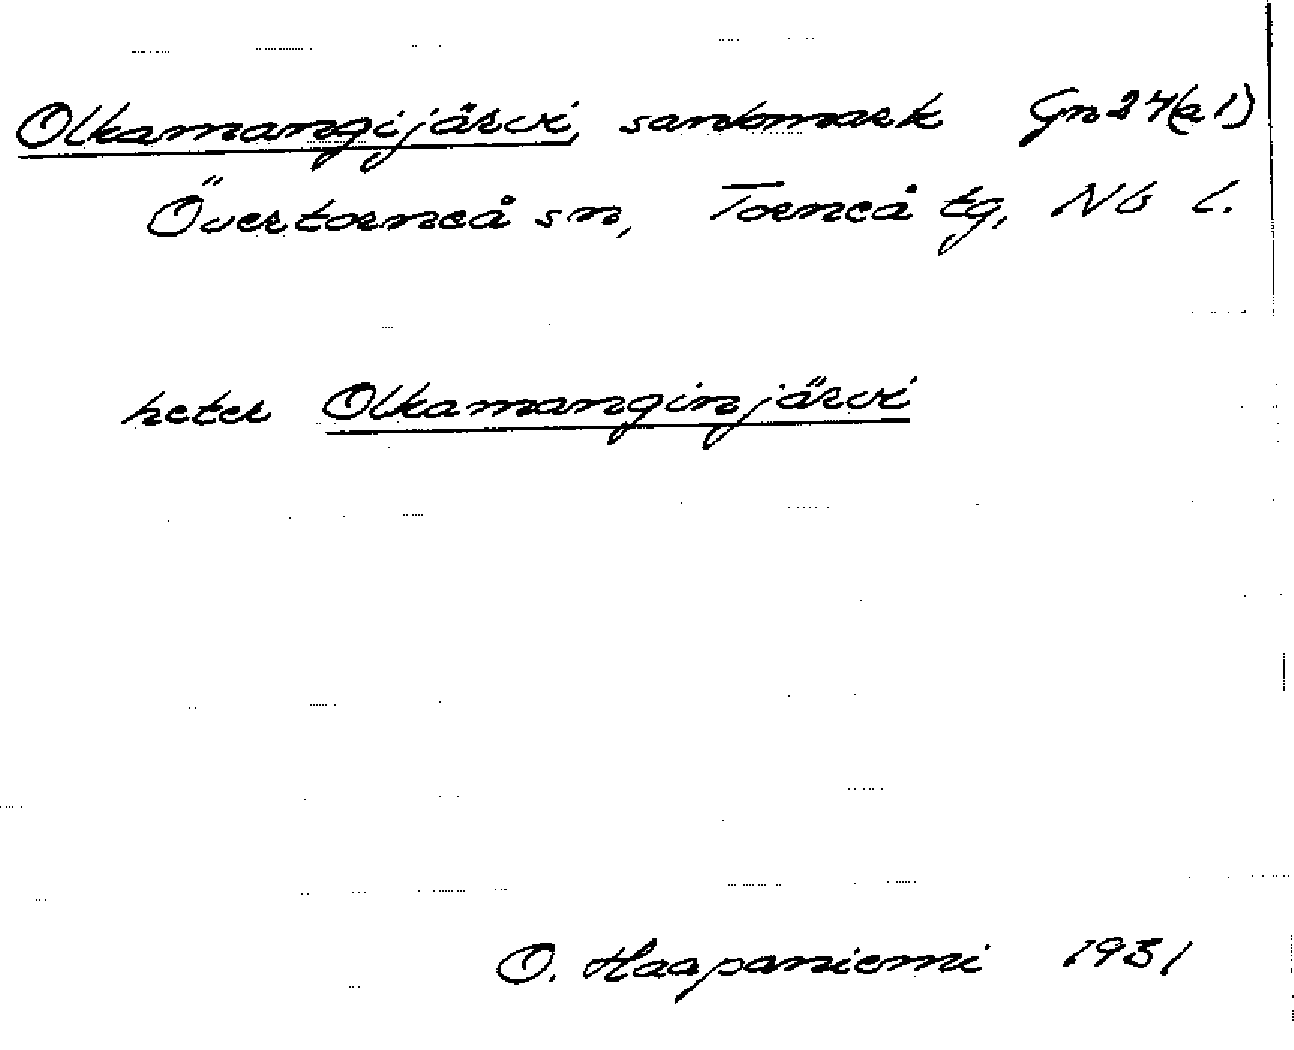 Olkamangijärvi, sankmark Gn24(a1)
Övertorneå sn, Torneå tg, Nb l.
heter Olkamanginjärvi
O. Haapaniemi 1931